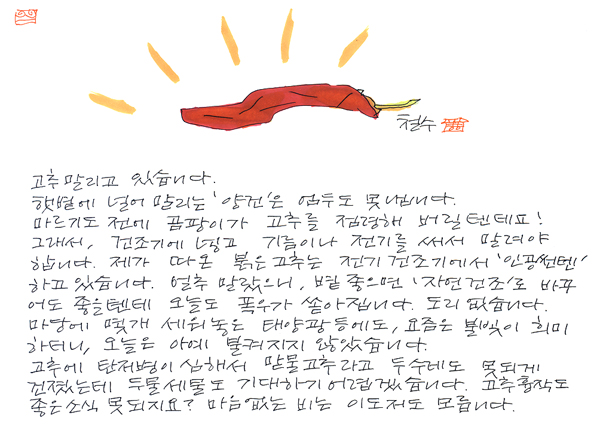 철수
고추 말리고 있습니다.
햇볕에 널어 말리는 '양건'은 엄두도 못냅니다.
마르기도 전에 곰팡이가 고추를 점령해 버릴텐데요!
그래서, 건조기에 넣고 기름이나 전기를 써서 말려야
합니다. 제가 따온 붉은고추는 전기건조기에서 '인공썬텐'
하고있습니다. 얼추 말랐으니, 볕 좋으면 '자연건조'로 바꾸
어도 좋을텐데 오늘도 폭우가 쏟아집니다. 도리 없습니다.
마당에 몇개 세워놓은 태양광등에도, 요즘은 불빛이 희미
하더니, 오늘은 아예 불켜지지 않았습니다.
고추에 탄저병이 심해서 맏물고추라고 두수레도 못되게
건졌는데 두물세물도 기대하기 어렵겠습니다. 고추흉작도
좋은소식 못되지요? 마음없는 비는 이도저도 모릅니다.